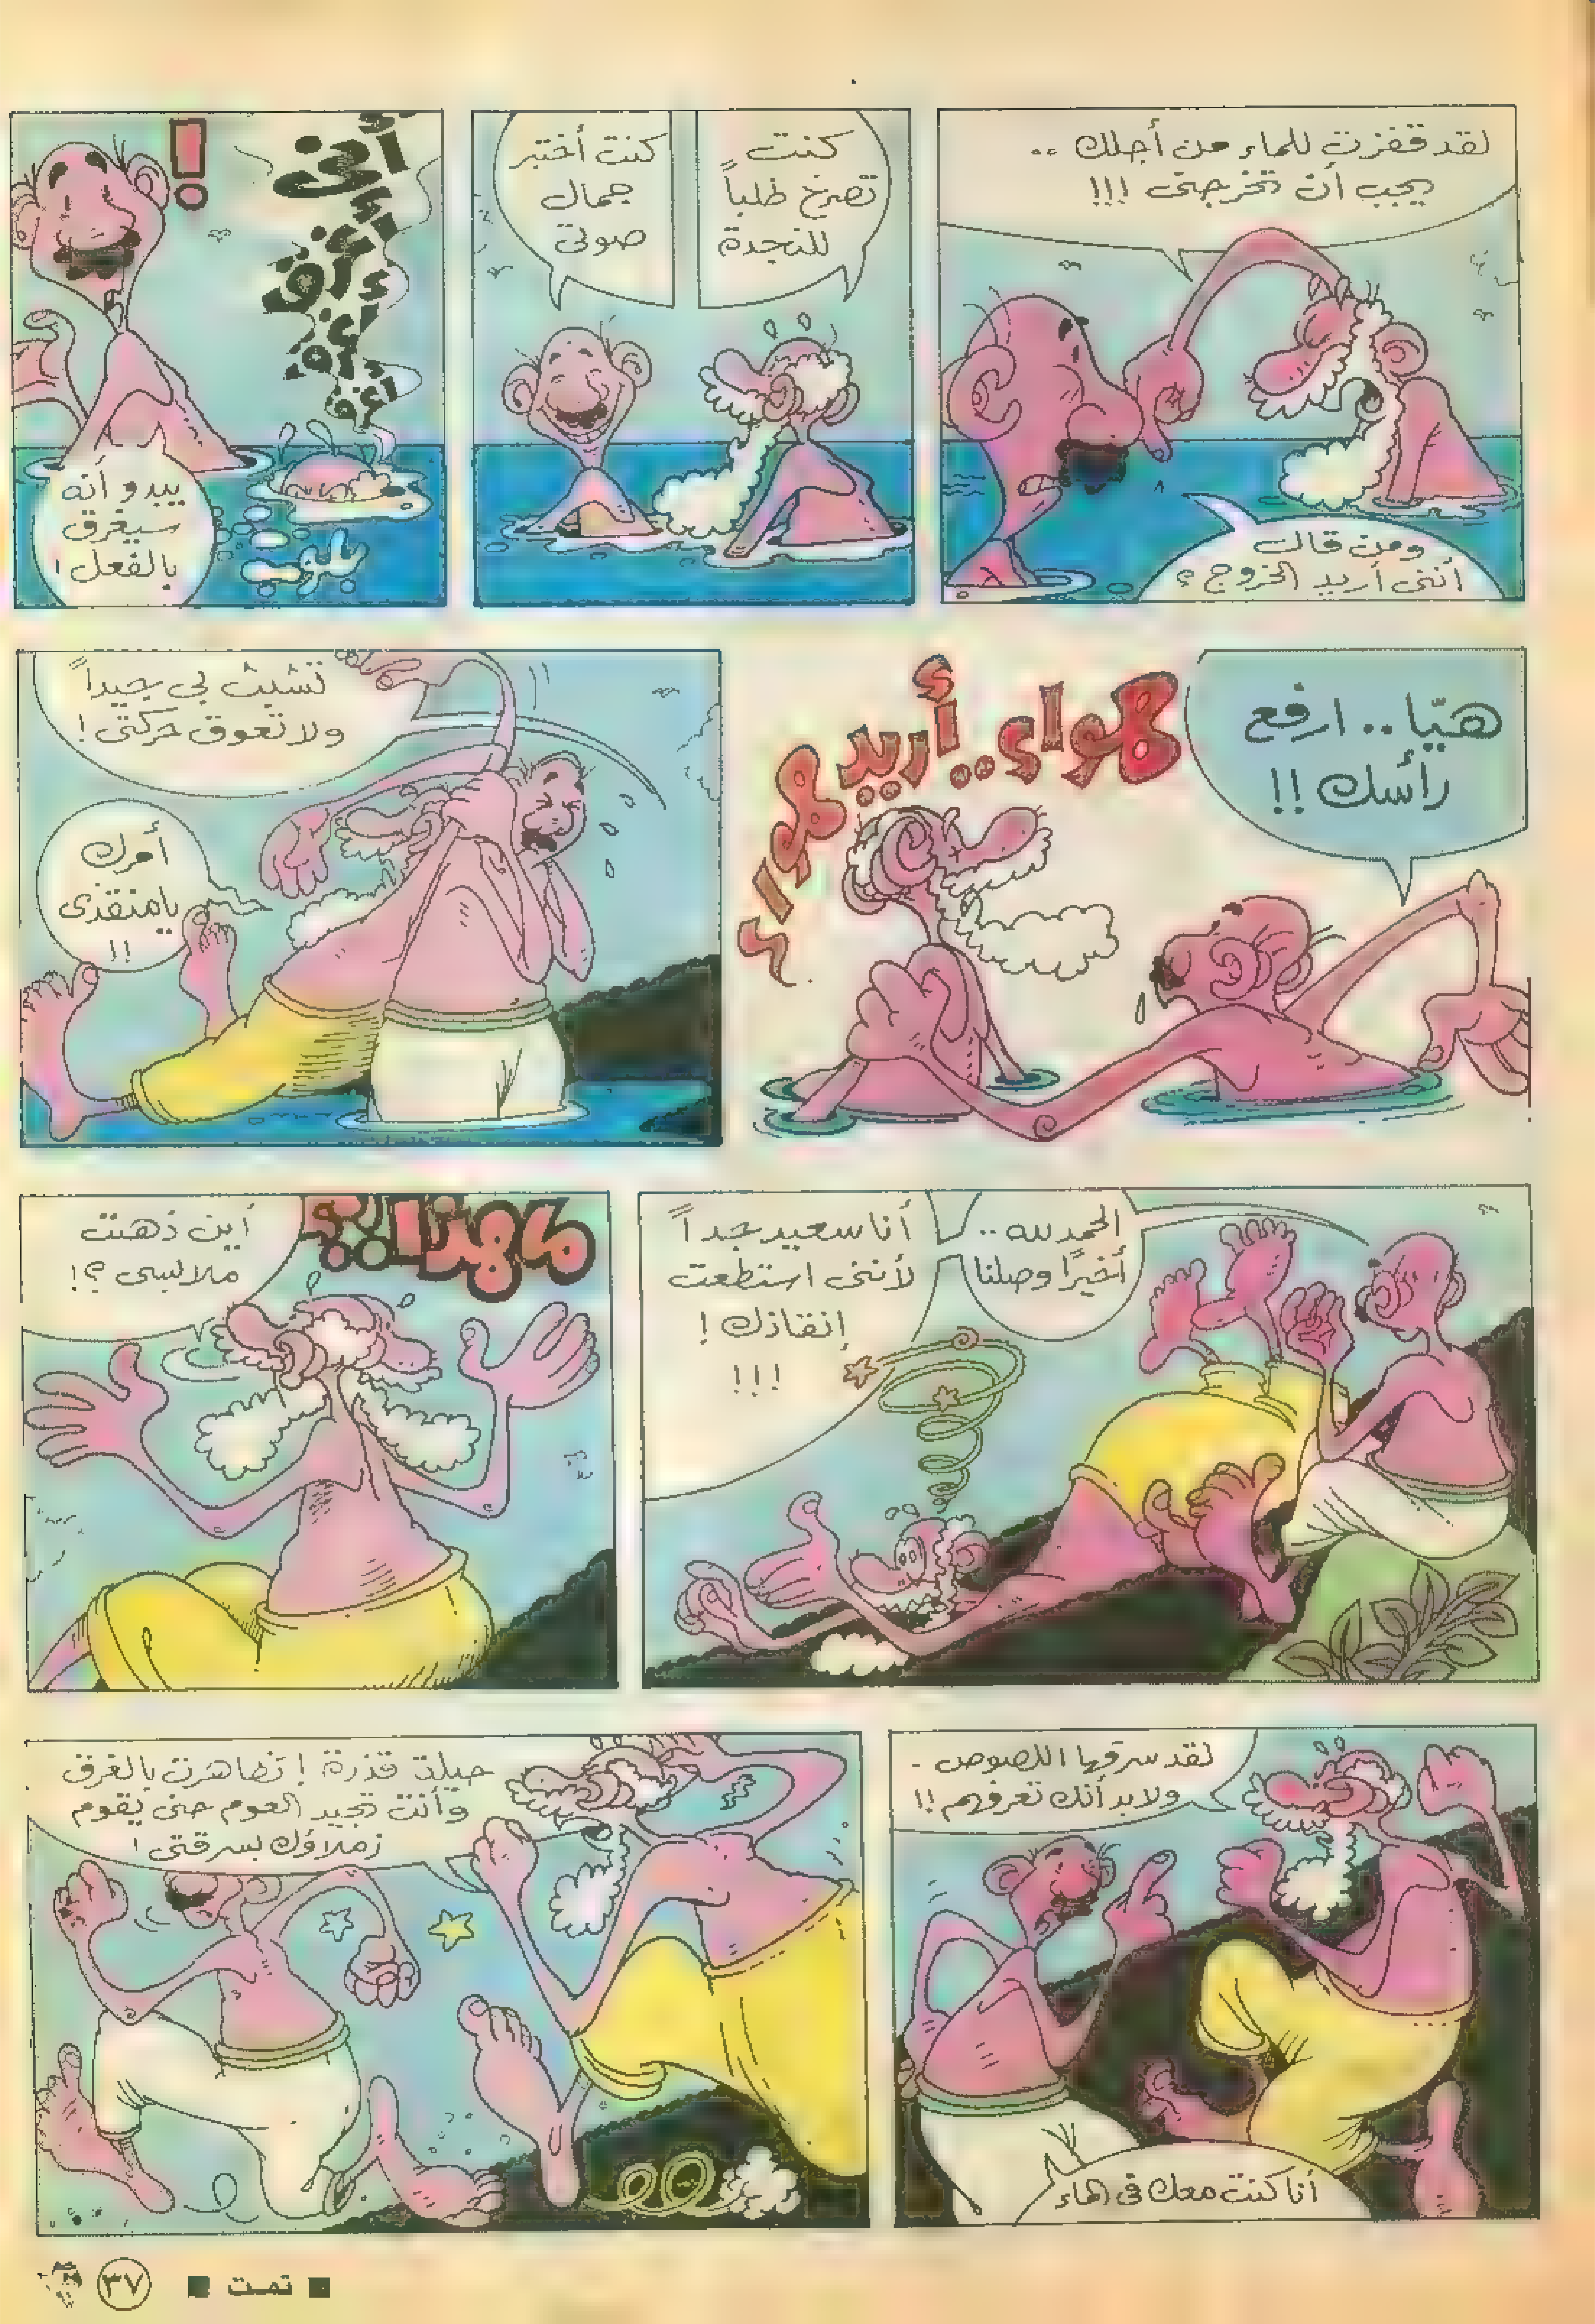 لقد قفزت للماء من أجلك ..
يجب أن تخرجنى !!!
ومن قال
أننى أريد الخروج ؟
كنت
تصرخ طلباً
للنجدة
كنت أختبر
جمال
صوتى
!
أغرق
أغرق
يبدو أنه
سيغرق
بالفعل !
هيّا .. ارفع
رأسك !!
هواء .. أريد هواء
تشبث بى جيداً
ولا تعوق حركتى !
أمرك
يا منقذى
!!
الحمد لله ..
أخيرًا وصلنا
أنا سعيد جداً
لأننى استطعت
إنقاذك !
!!!
ما هذا !؟
أين ذهبت
ملابسى ؟!
لقد سرقها اللصوص .
ولابد أنك تعرفهم !!
أنا كنت معك فى الماء
حيلة قذرة ! تظاهرت بالغرق
وأنت تجيد العوم حتى يقوم
زملاؤك بسرقتى !
■ تمت ■
٣٧